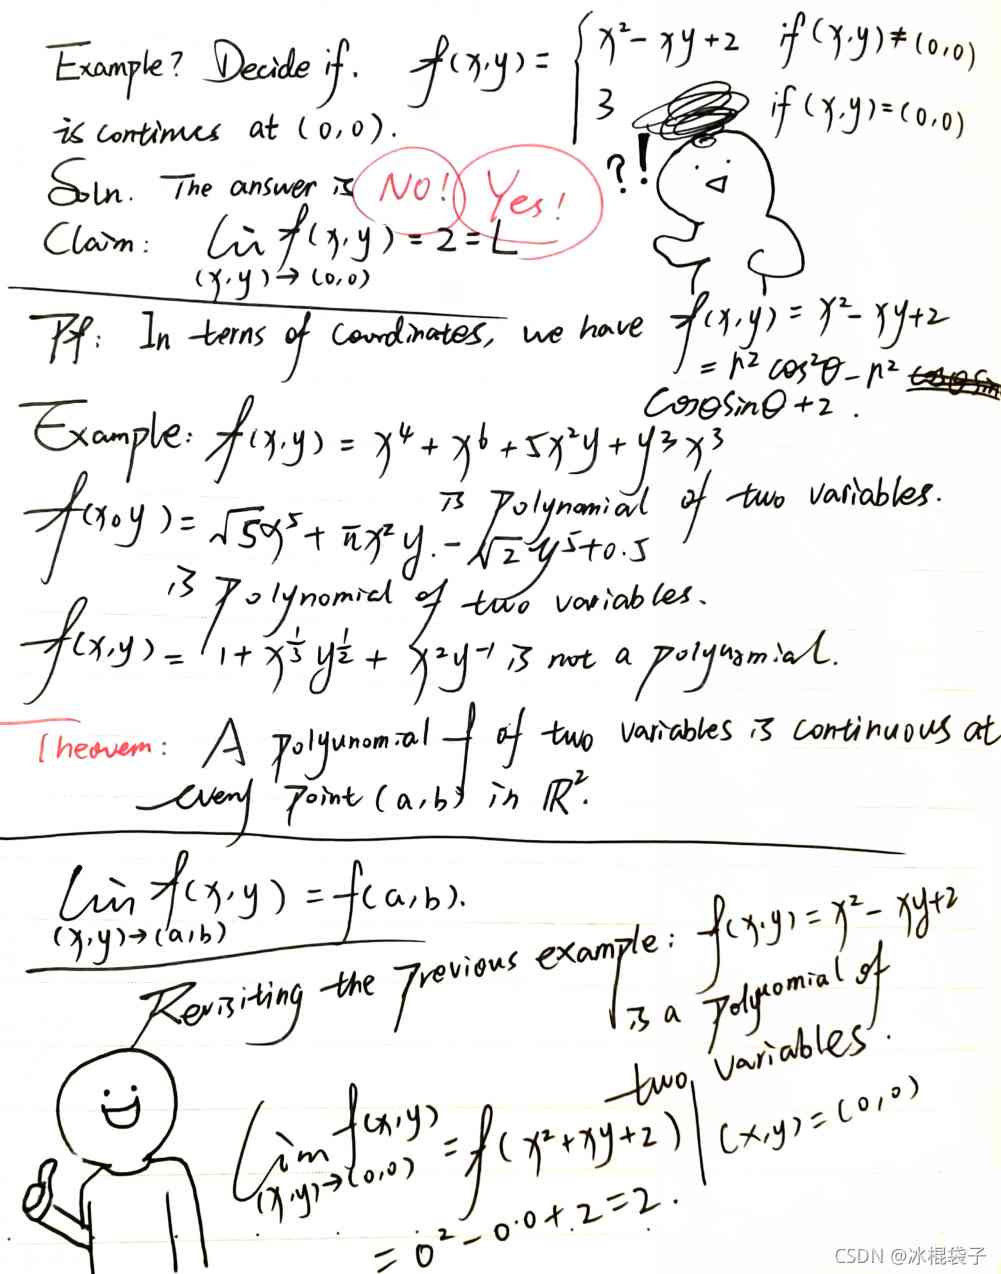 Example? Decide if. f(x,y) = { x²-xy+2 if (x,y)≠(0,0)
3 if (x,y)=(0,0)
is continues at (0,0).
?!
Soln. The answer is NO! Yes!
Claim: lim f(x,y) = 2 = L
(x,y)→(0,0)
Pf: In terms of coordinates, we have f(x,y) = x²-xy+2
= r² cos²θ - r²
cosθsinθ+2.
Example: f(x,y) = x⁴+x⁶+5x²y+y³x³
is polynomial of two variables.
f(x,y) = √5x⁵+πx²y.-√2y⁵+0.5
is polynomial of two variables.
f(x,y) = 1+x^{1/3}y^{1/2}+x²y⁻¹ is not a polynomial.
Theorem: A polyunomial f of two variables is continuous at
every point (a,b) in ℝ².
lim f(x,y) = f(a,b).
(x,y)→(a,b)
Revisiting the previous example: f(x,y) = x²-xy+2
is a polynomial of
two variables.
lim f(x,y) = f(x²+xy+2)|(x,y)=(0,0)
(x,y)→(0,0)
= 0²-0·0+2=2.
CSDN @冰棍袋子